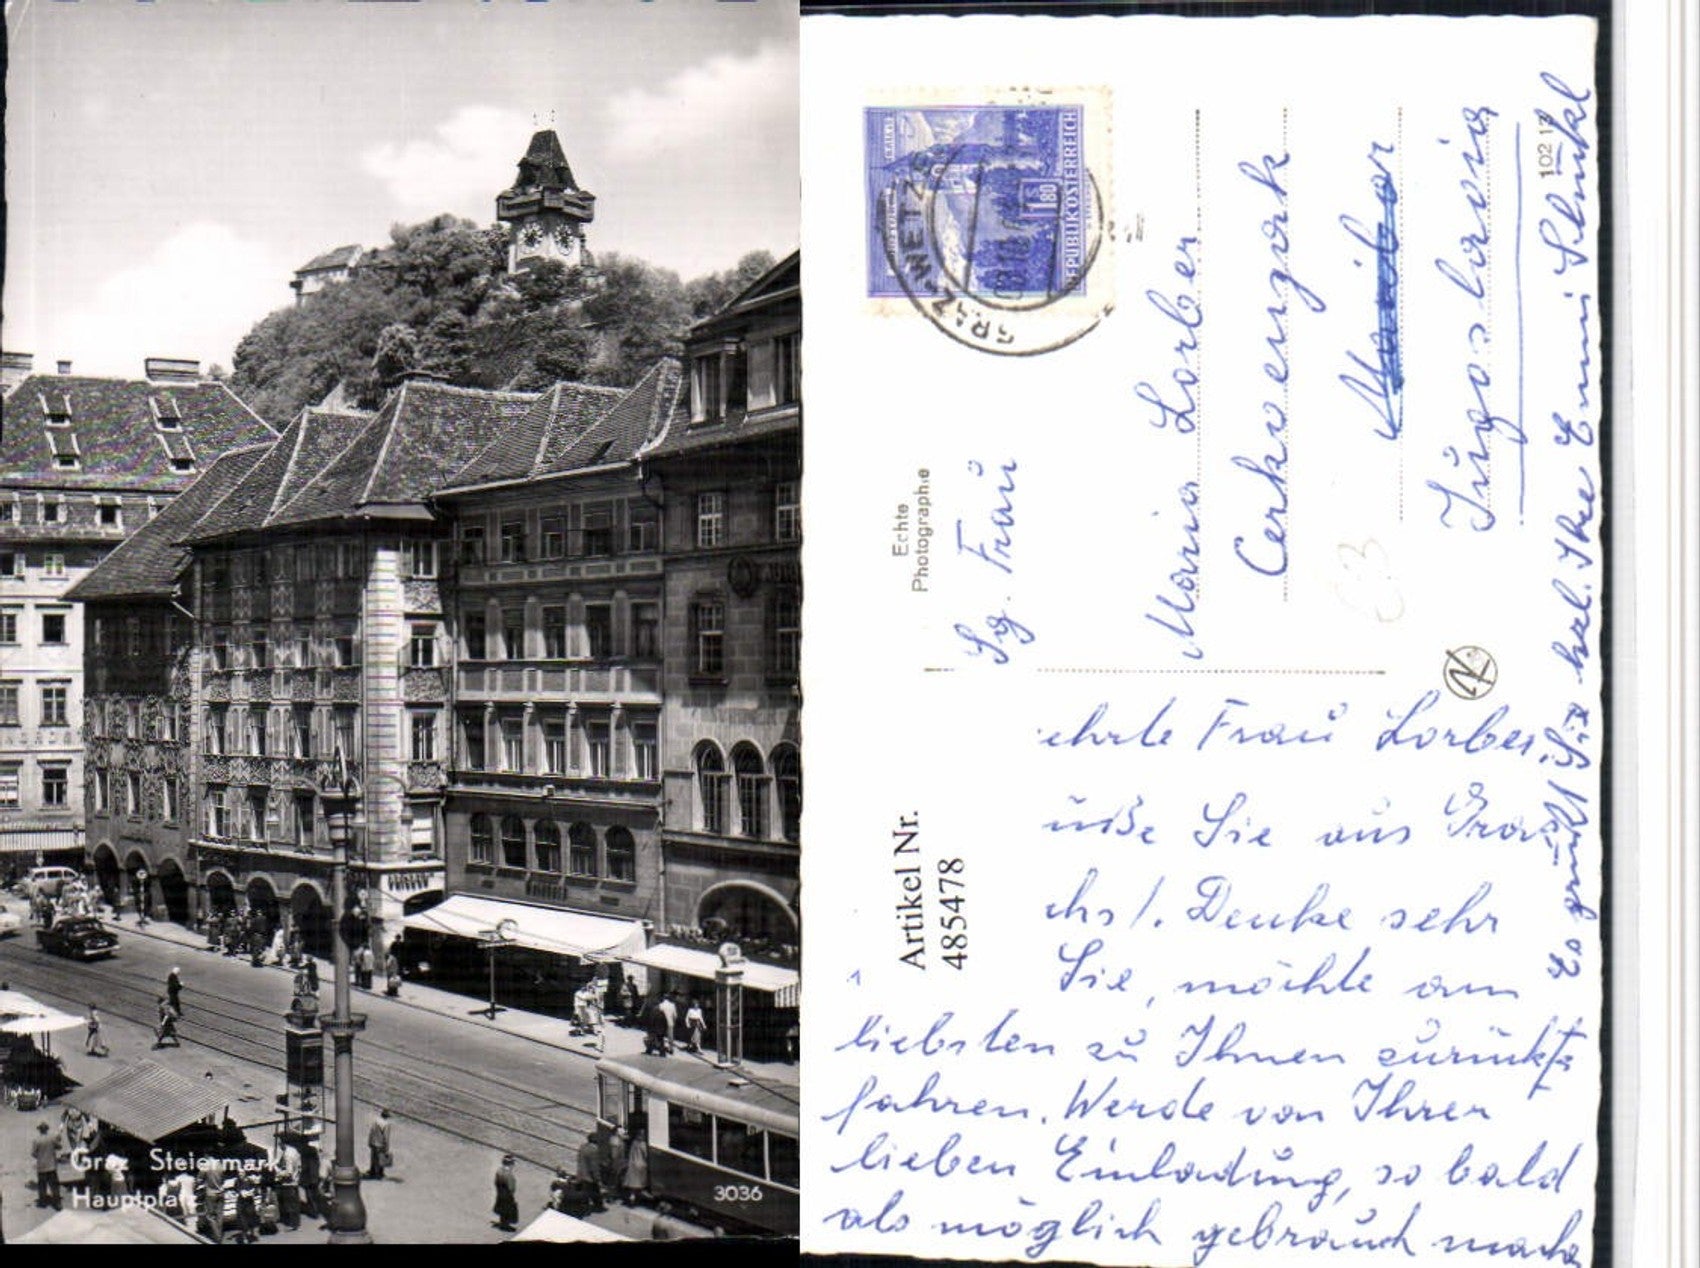 Graz Steiermark
Hauptplatz
3036
REPUBLIK ÖSTERREICH
S 1.80
GRAZ-WETZ
Echte
Photographie
Sg. Frau
Maria Lorber
Cerkvenjak
Maribor
Jugoslavia
102 17
Artikel Nr.
485478
ehrte Frau Lorber,
üße Sie aus Graz
chst. Denke sehr
Sie, möchte am
liebsten zu Ihnen zurück
fahren. Werde von Ihrer
lieben Einladung, so bald
als möglich gebrauch mache
Es grüßt Sie herzl. Ihre Emmi